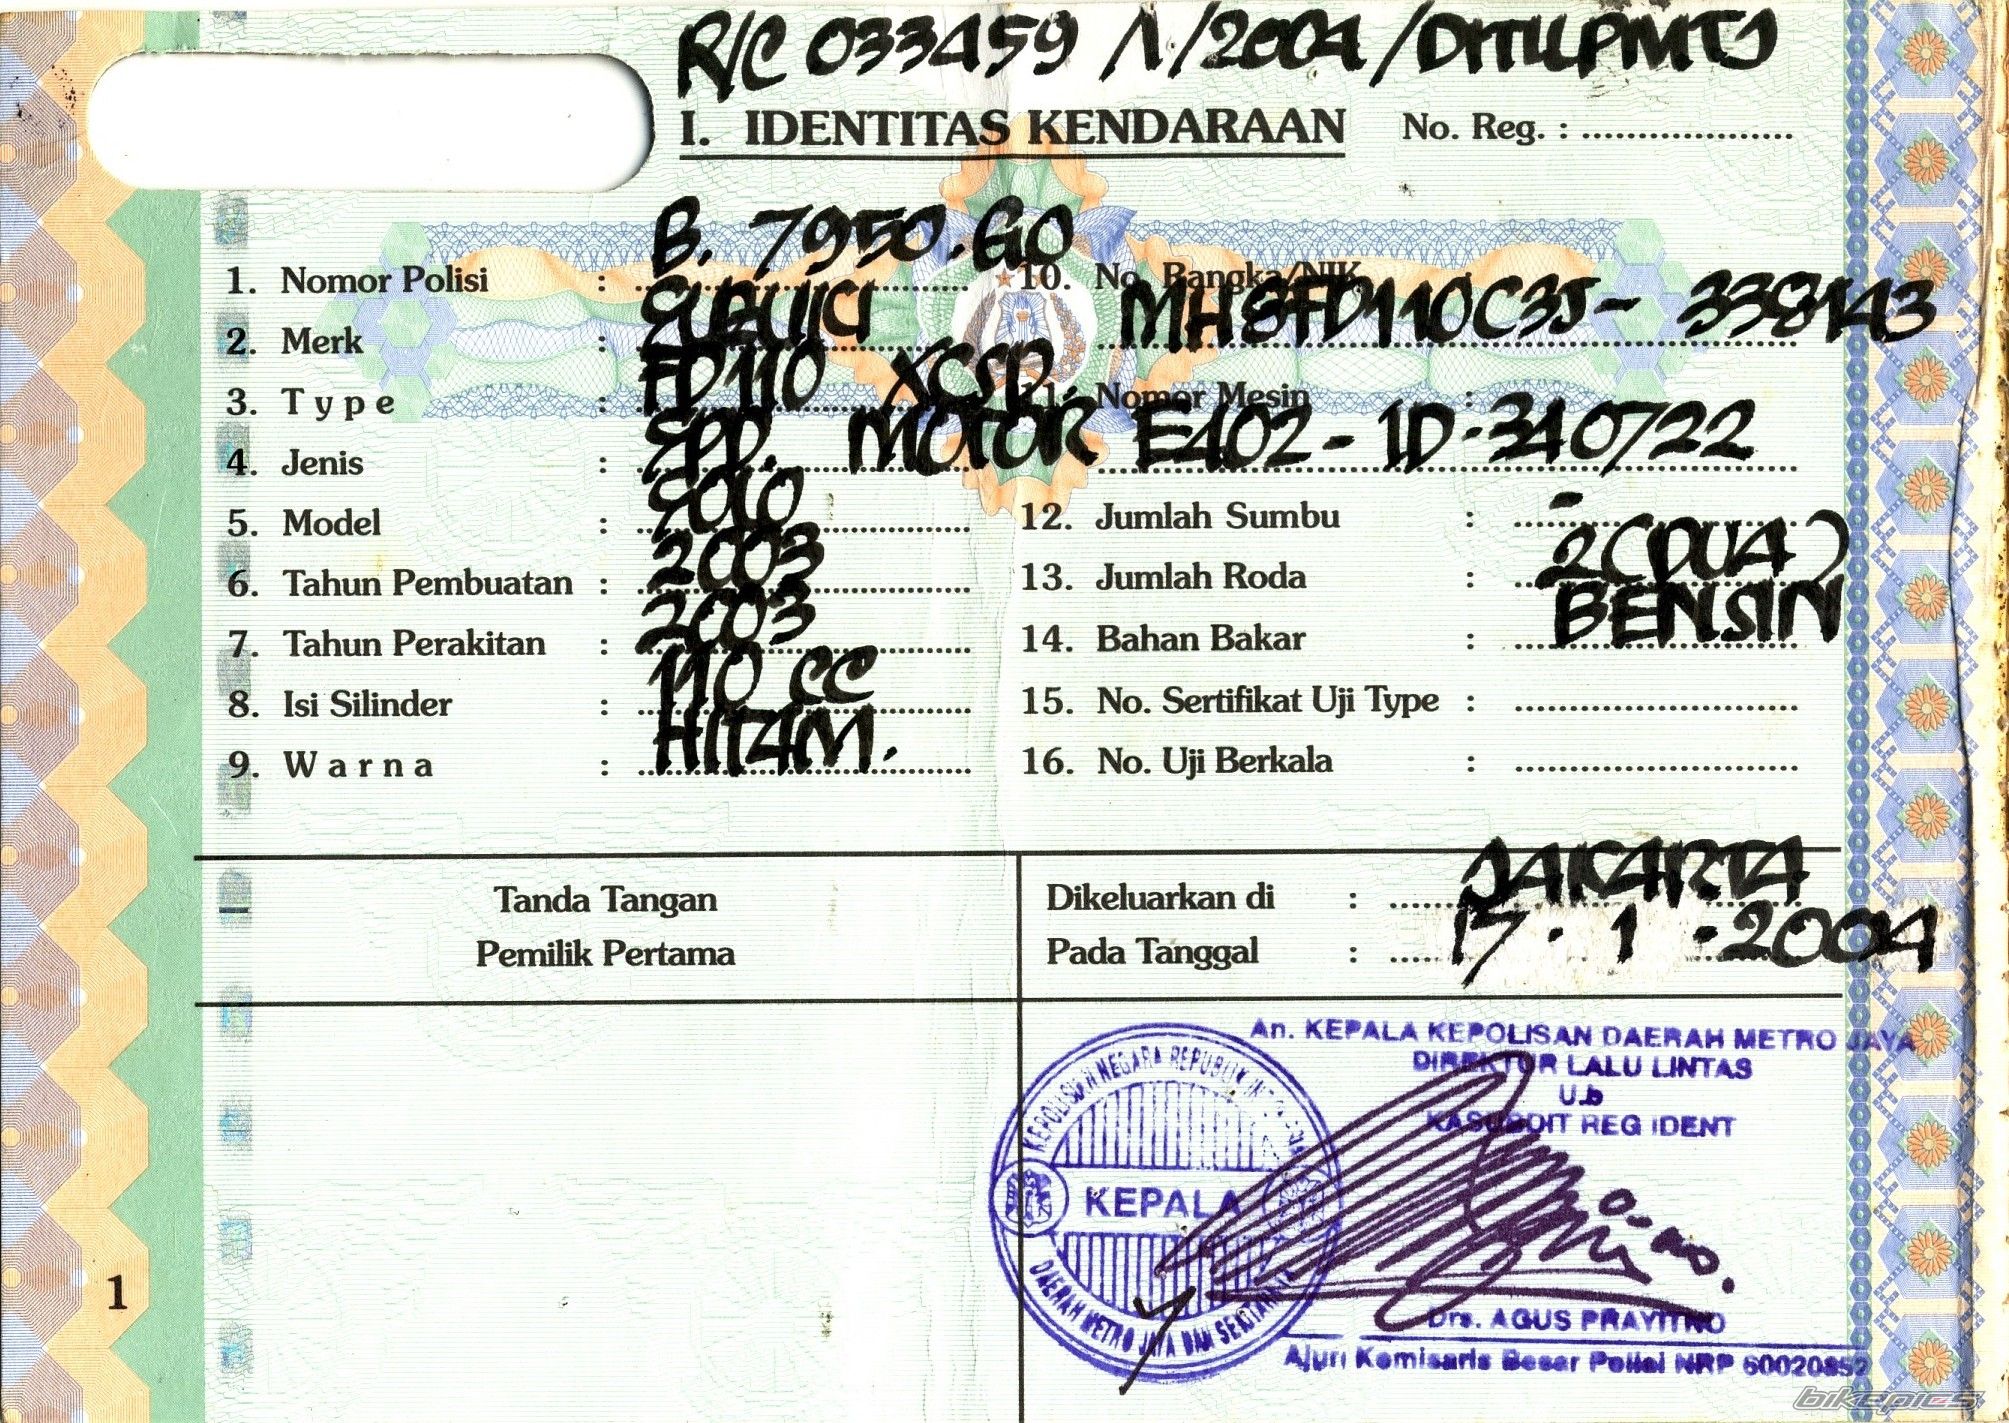 R/C 033459 /1/2004 /DITLLPMTJ
I. IDENTITAS KENDARAAN No. Reg. :
1. Nomor Polisi : B. 7950.GO
2. Merk : SUZUKI
3. Type : FD110 XCSD.
4. Jenis : SPD. MOTOR
5. Model : SOLO
6. Tahun Pembuatan : 2003
7. Tahun Perakitan : 2003
8. Isi Silinder : 110 CC
9. Warna : HITAM.
10. No. Rangka/NIK
MH8FD110C3J- 338143
11. Nomor Mesin :
E402-1D-340722
12. Jumlah Sumbu : -
13. Jumlah Roda : 2(DUA)
14. Bahan Bakar : BENSIN
15. No. Sertifikat Uji Type :
16. No. Uji Berkala :
Tanda Tangan
Pemilik Pertama
Dikeluarkan di : JAKARTA
Pada Tanggal : 17 · 1 · 2004
An. KEPALA KEPOLISAN DAERAH METRO JAYA
DIREKTUR LALU LINTAS
U.b
KASUBDIT REG IDENT
KEPOLISIAN NEGARA REPUBLIK INDONESIA
KEPALA
DAERAH METRO JAYA DAN SEKITARNYA
Drs. AGUS PRAYITNO
Ajun Komisaris Besar Polisi NRP 60020852
1
bikepics